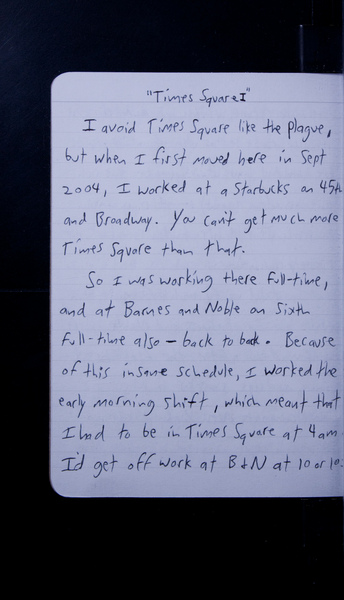 "Times Square I"
I avoid Times Square like the plague,
but when I first moved here in Sept
2004, I worked at a Starbucks on 45th
and Broadway. You can't get much more
Times Square than that.
So I was working there full-time,
and at Barnes and Noble on Sixth
full-time also – back to back. Because
of this insane schedule, I worked the
early morning shift, which meant that
I had to be in Times Square at 4am.
I'd get off work at B&N at 10 or 10: